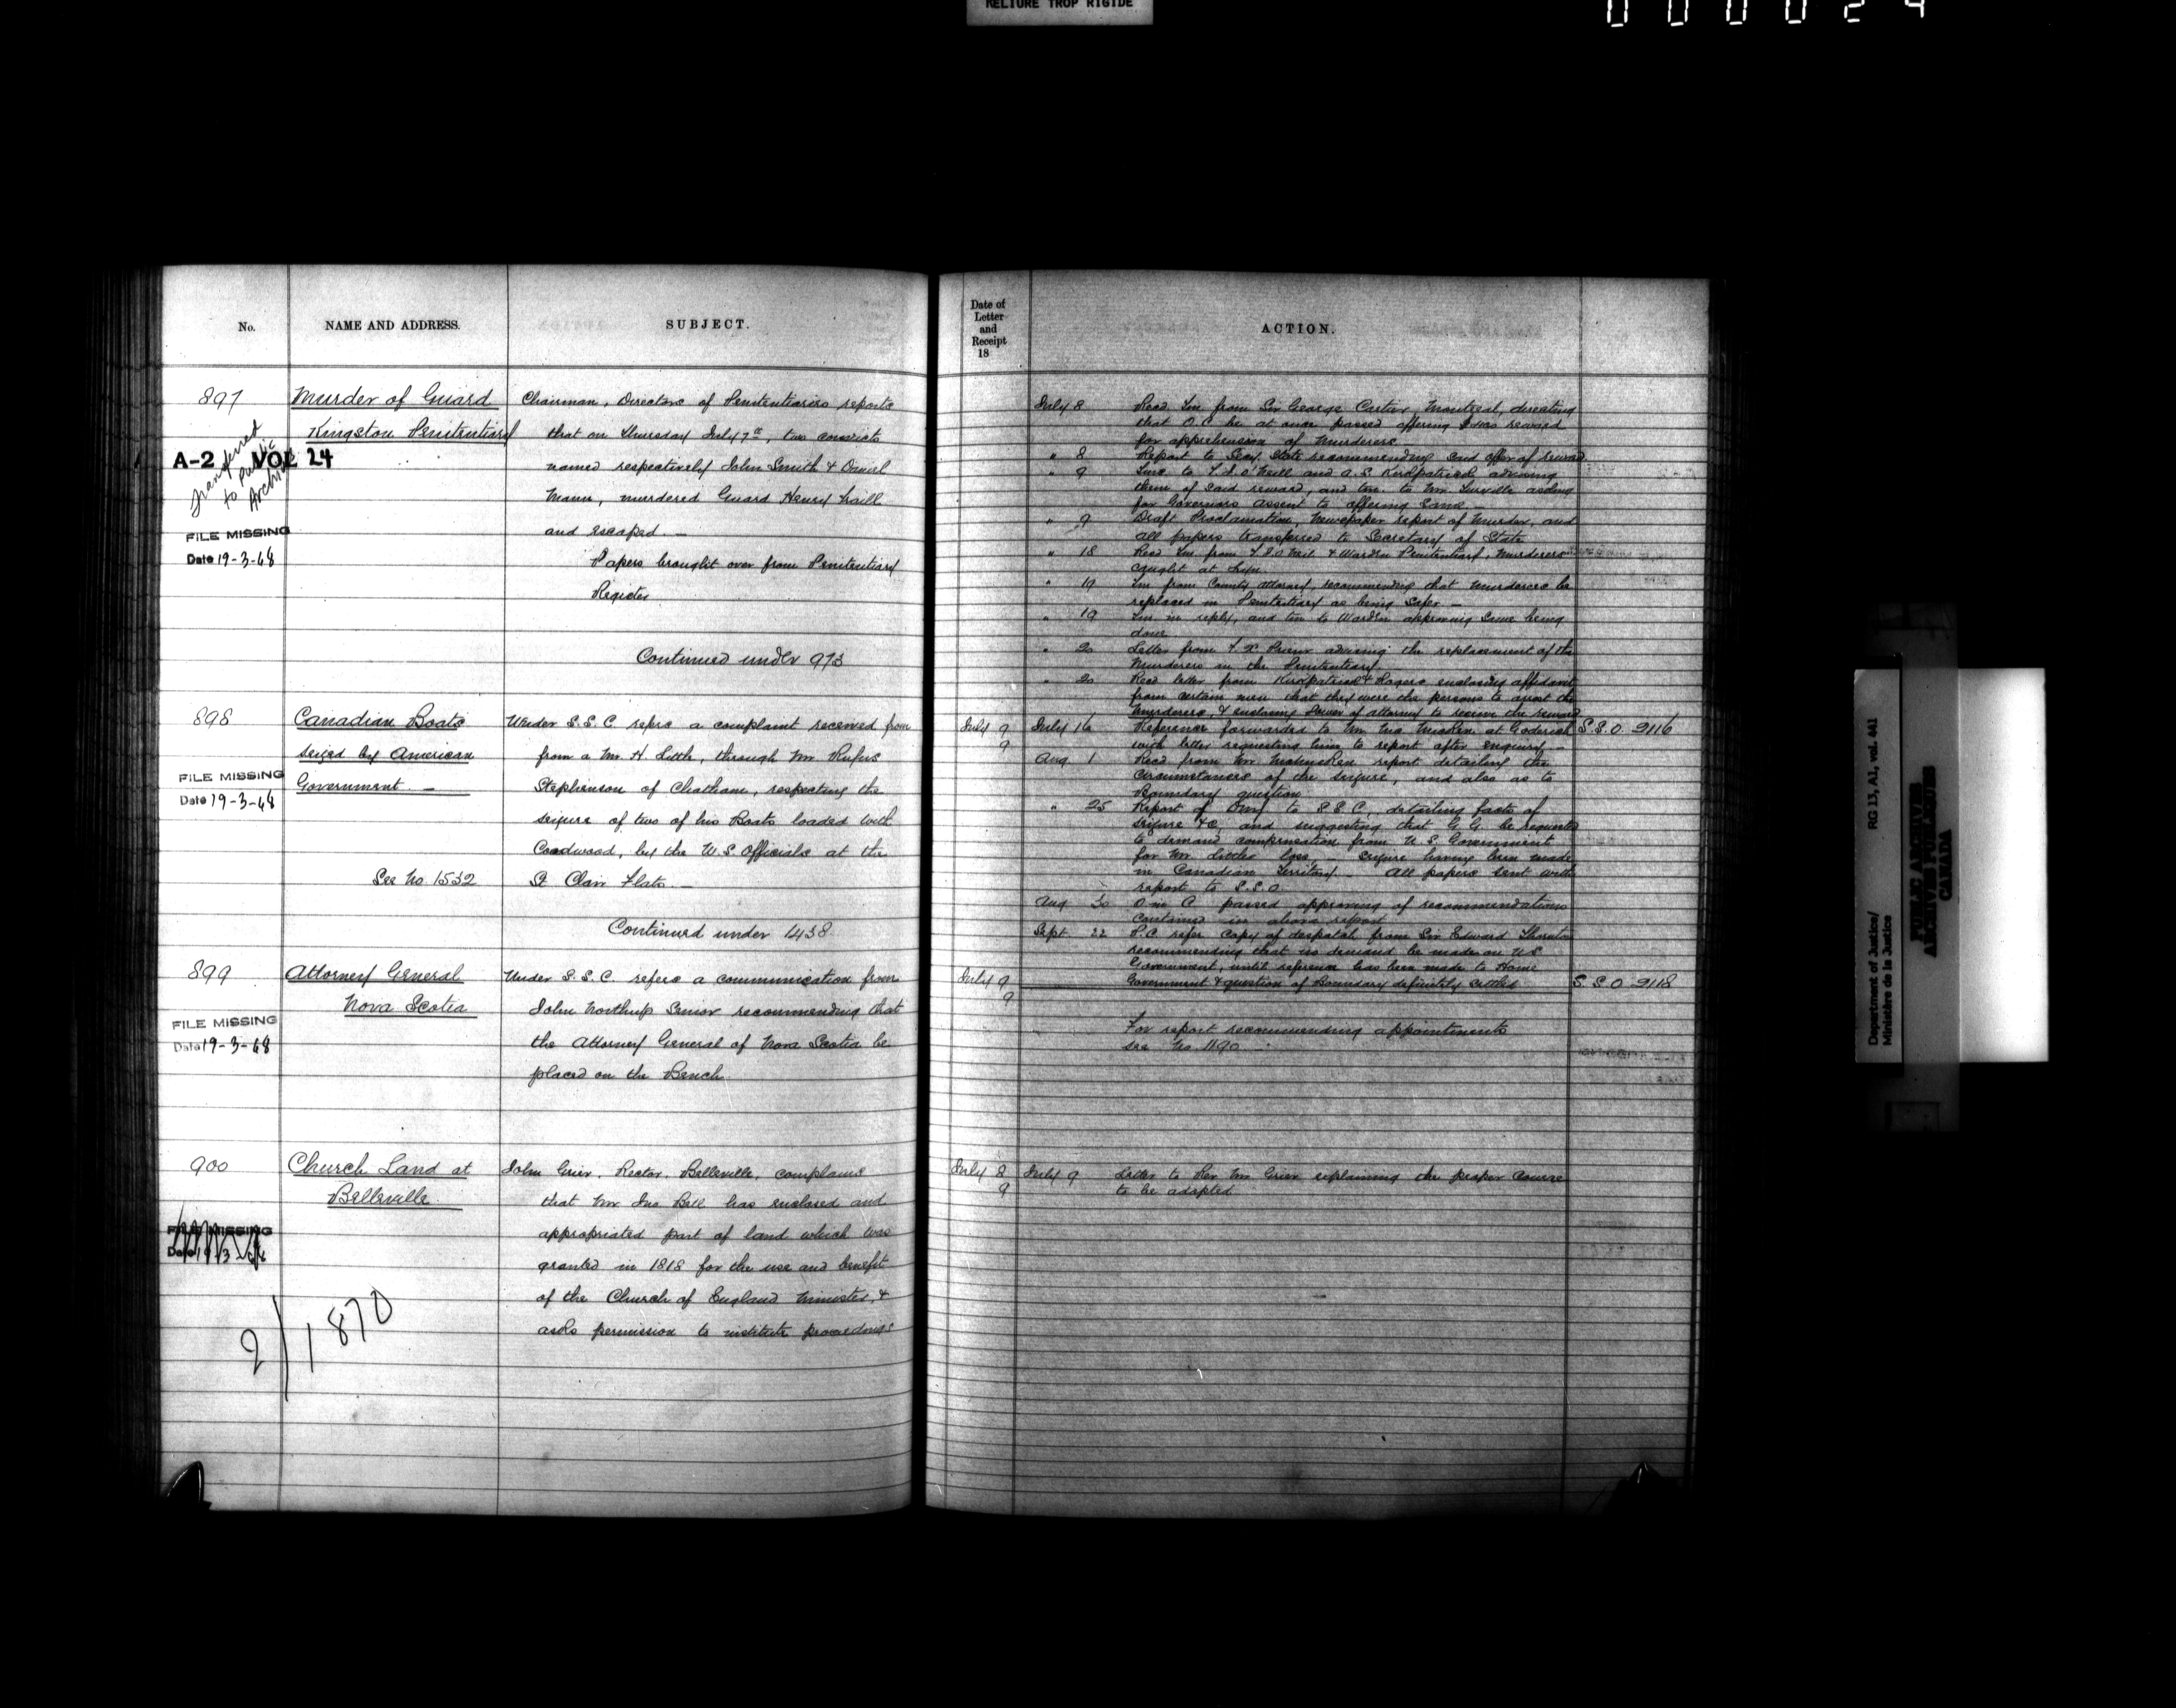 RELIURE TROP RIGIDE
000024
No.
NAME AND ADDRESS.
SUBJECT.
897
Murder of Guard
Kingston Penitentiary
A-2 VOL 24
Transferred
to Public
Archives
FILE MISSING
Date 19-3-68
Chairman, Directors of Penitentiaries reports
that on Thursday July 7th, two convicts
named respectively John Smith & Daniel
Mann, murdered Guard Henry Traill
and escaped. —
Papers brought over from Penitentiary
Register
Continued under 973
898
Canadian Boats
seized by American
Government. —
FILE MISSING
Date 19-3-68
See No. 1532
Under S.S.C. refers a complaint received from
from a Mr. H. Little, through Mr Rufus
Stephenson of Chatham, respecting the
seizure of two of his Boats loaded with
Cordwood, by the U.S. Officials at the
St Clair Flats. —
Continued under 1438
899
Attorney General
Nova Scotia
FILE MISSING
Date 19-3-68
Under S.S.C. refers a communication from
John Northup Senior recommending that
the Attorney General of Nova Scotia be
placed on the Bench
900
Church Land at
Belleville
FILE MISSING
Date 19-3-68
2/1870
John Grier, Rector, Belleville, complains
that Mr Jno. Bell has enclosed and
appropriated part of land which was
granted in 1818 for the use and benefit
of the Church of England Minister, &
asks permission to institute proceedings
Date of
Letter
and
Receipt
18
ACTION.
July 8 Recd Tm. from Sir George Cartier, Montreal, directing
that O.C. be at once passed offering reward
for apprehension of Murderers
" 8 Report to Secy. State recommending said offer of reward
" 9 Tms. to O'Neill and A.S. Kirkpatrick advising
them of said reward, and tm. to Mr. Turville asking
for Governors assent to offering same
" 9 Draft Proclamation, Newspaper report of Murder, and
all papers transferred to Secretary of State
" 18 Recd Tm. from & Warden Penitentiary, Murderers
caught at
" 19 Tm from County Attorney, recommending that Murderers be
replaced in Penitentiary as being safer —
" 19 Tm in reply, and tm to Warden approving same being
done
" 20 Letter from advising the replacement of the
Murderers in the Penitentiary
" 20 Recd letter from Kirkpatrick & Rogers enclosing affidavit
from certain men that they were the persons to arrest the
Murderers, & enclosing Power of attorney to receive the reward
July 9
9
July 16 Reference forwarded to Mr. at Goderich
with letter requesting him to report after enquiry —
S.S.O. 2116
Aug 1 Recd from Mr. report detailing the
circumstances of the seizure, and also as to
Boundary question
" 25 Report of to S.S.C. detailing facts of
seizure &c, and suggesting that G.G. be requested
to demand compensation from U.S. Government
for Mr Littles loss, — seizure having been made
in Canadian Territory — All papers sent with
report to S.S.O.
Aug 30 O in C passed approving of recommendations
contained in above report
Sept. 22 P.C. refer Copy of despatch from Sir Edward Thornton
recommending that no demand be made on U.S.
Government, until reference has been made to Home
Government & question of Boundary definitely settled
July 9
9
S.S.O. 2118
For report recommending appointments
see No. 1190
July 8
9
July 9 Letter to Rev Mr Grier explaining the proper course
to be adopted
Department of Justice/
Ministère de la Justice
RG 13, A1, vol. 441
PUBLIC ARCHIVES
ARCHIVES PUBLIQUES
CANADA